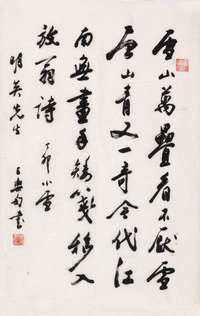 雪山萬疊看不厭雪
尽山青又一奇今代江
南無畫手矮箋移入
放翁詩 丁卯小雪
明英先生